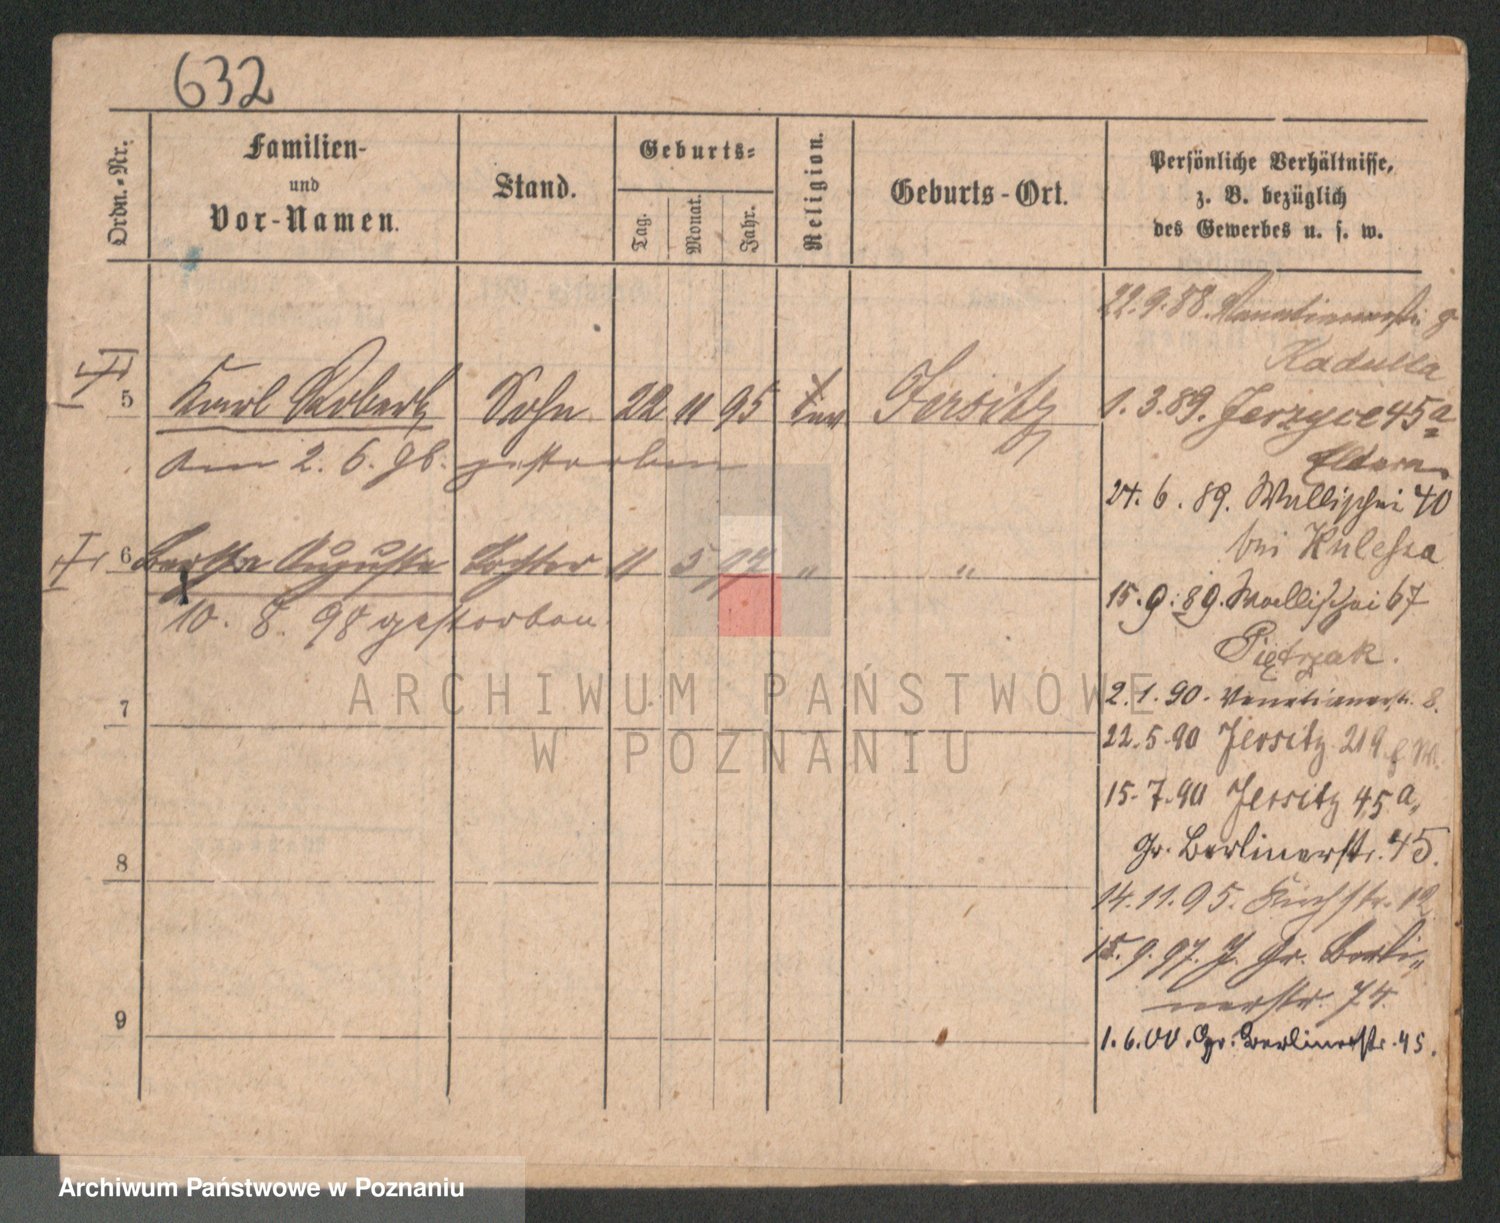 632
Ordn.-Nr.
Familien-
und
Vor-Namen.
Stand.
Geburts-
Tag.
Monat.
Jahr.
Religion.
Geburts-Ort.
Persönliche Verhältnisse,
z. B. bezüglich
des Gewerbes u. s. w.
5 Karl Robert Sohn 22 11 95 ev Jersitz
am 2. 6. 96. gestorben
6 Bertha Auguste Tochter 11 5 97 " "
10. 8. 98 gestorben
7
8
9
22.9.88. Venetianerstr. 8
Kadulla
1.3.89. Jerzyce 45a
Eltern
24.6.89. Wallischei 40
bei Kulessa
15.9.89. Wallischei 67
Piętrzak.
2.1.90. Venetianerstr. 8.
22.5.90 Jersitz 219
15.7.90 Jersitz 45a,
Gr. Berlinerstr. 45.
14.11.95. Kirchstr. 12
15.9.97. J. Gr. Berli-
nerstr. 74.
1.6.00. Gr. Berlinerstr. 45.
ARCHIWUM PAŃSTWOWE
W POZNANIU
Archiwum Państwowe w Poznaniu